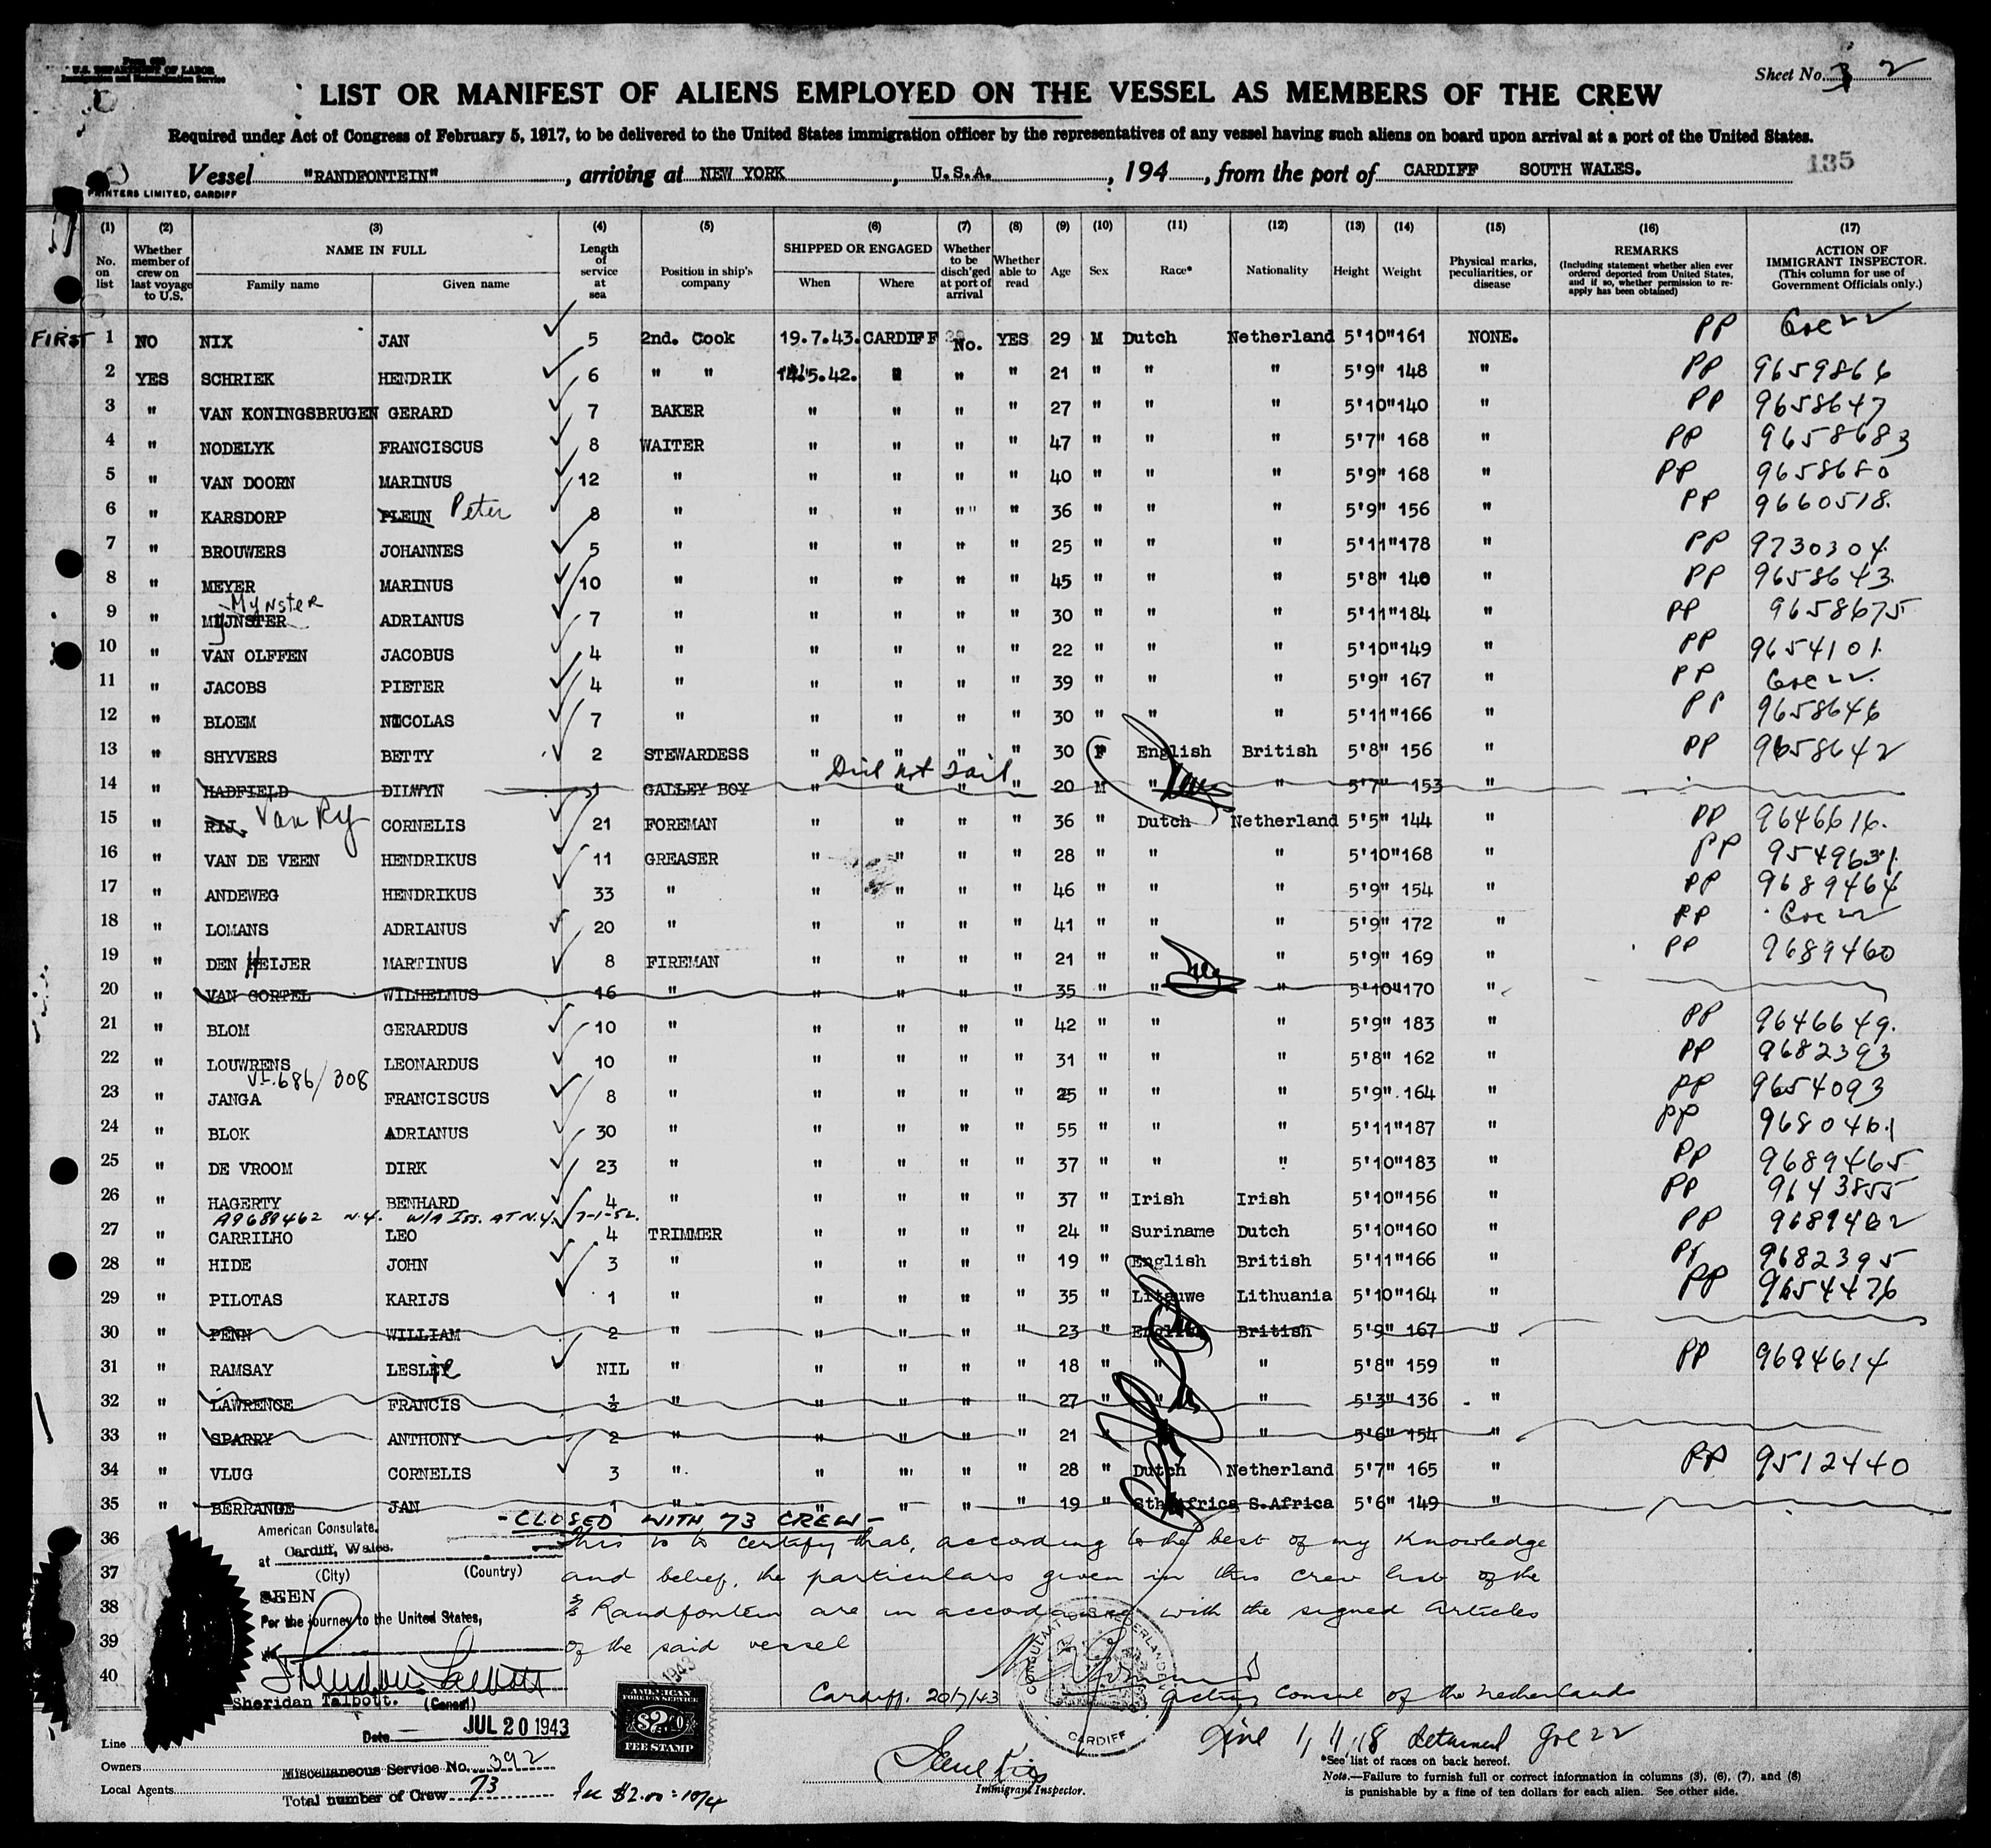 Form 680
U.S. DEPARTMENT OF LABOR
Immigration and Naturalization Service
Sheet No. 3 2
LIST OR MANIFEST OF ALIENS EMPLOYED ON THE VESSEL AS MEMBERS OF THE CREW
Required under Act of Congress of February 5, 1917, to be delivered to the United States immigration officer by the representatives of any vessel having such aliens on board upon arrival at a port of the United States.
Vessel "RANDFONTEIN", arriving at NEW YORK, U.S.A., 194, from the port of CARDIFF SOUTH WALES. 135
PRINTERS LIMITED, CARDIFF
(1) (2) (3) (4) (5) (6) (7) (8) (9) (10) (11) (12) (13) (14) (15) (16) (17)
No. on list
Whether member of crew on last voyage to U.S.
NAME IN FULL
Family name Given name
Length of service at sea
Position in ship's company
SHIPPED OR ENGAGED
When Where
Whether to be disch'ged at port of arrival
Whether able to read
Age Sex Race* Nationality Height Weight
Physical marks, peculiarities, or disease
REMARKS
(Including statement whether alien ever ordered deported from United States, and if so, whether permission to re-apply has been obtained)
ACTION OF IMMIGRANT INSPECTOR.
(This column for use of Government Officials only.)
FIRST 1 NO NIX JAN 5 2nd. Cook 19.7.43. CARDIFF No. YES 29 M Dutch Netherland 5'10" 161 NONE. PP
2 YES SCHRIEK HENDRIK 6 " " 14.5.42. " " " 21 " " " 5'9" 148 " PP 9659866
3 " VAN KONINGSBRUGEN GERARD 7 BAKER " " " " 27 " " " 5'10" 140 " PP 9658647
4 " NODELYK FRANCISCUS 8 WAITER " " " " 47 " " " 5'7" 168 " PP 9658683
5 " VAN DOORN MARINUS 12 " " " " " 40 " " " 5'9" 168 " PP 9658680
6 " KARSDORP PLEUN Peter 8 " " " " " 36 " " " 5'9" 156 " PP 9660518.
7 " BROUWERS JOHANNES 5 " " " " " 25 " " " 5'11" 178 " PP 9730304.
8 " MEYER MARINUS 10 " " " " " 45 " " " 5'8" 140 " PP 9658643.
Mynster
9 " MIJNSTER ADRIANUS 7 " " " " " 30 " " " 5'11" 184 " PP 9658675
10 " VAN OLFFEN JACOBUS 4 " " " " " 22 " " " 5'10" 149 " PP 9654101.
11 " JACOBS PIETER 4 " " " " " 39 " " " 5'9" 167 " PP
12 " BLOEM NICOLAS 7 " " " " " 30 " " " 5'11" 166 " PP 9658646
13 " SHYVERS BETTY 2 STEWARDESS " " " " 30 F English British 5'8" 156 " PP 9658642
Did Not Sail
14 " HADFIELD DILWYN 1 GALLEY BOY " " " " 20 M " " 5'7" 153 "
15 " RIJ. Van Ry CORNELIS 21 FOREMAN " " " " 36 " Dutch Netherland 5'5" 144 " PP 9646616.
16 " VAN DE VEEN HENDRIKUS 11 GREASER " " " " 28 " " " 5'10" 168 " PP 9549631
17 " ANDEWEG HENDRIKUS 33 " " " " " 46 " " " 5'9" 154 " PP 9689464
18 " LOMANS ADRIANUS 20 " " " " " 41 " " " 5'9" 172 " PP
19 " DEN HEIJER MARTINUS 8 FIREMAN " " " " 21 " " " 5'9" 169 " PP 9689460
20 " VAN GORTEL WILHELMUS 16 " " " " " 35 " " " 5'10" 170 "
21 " BLOM GERARDUS 10 " " " " " 42 " " " 5'9" 183 " PP 9646649.
22 " LOUWRENS LEONARDUS 10 " " " " " 31 " " " 5'8" 162 " PP 9682393
686/308
23 " JANGA FRANCISCUS 8 " " " " " 25 " " " 5'9" 164 " PP 9654093
24 " BLOK ADRIANUS 30 " " " " " 55 " " " 5'11" 187 " PP 9680461
25 " DE VROOM DIRK 23 " " " " " 37 " " " 5'10" 183 " PP 9689465
26 " HAGERTY BENHARD 4 " " " " " 37 " Irish Irish 5'10" 156 " PP 9643855
A9689462 N.Y. W/A Iss. AT N.Y. 7-1-52.
27 " CARRILHO LEO 4 TRIMMER " " " " 24 " Suriname Dutch 5'10" 160 " PP 9689462
28 " HIDE JOHN 3 " " " " " 19 " English British 5'11" 166 " PP 9682395
29 " PILOTAS KARIJS 1 " " " " " 35 " Litauwe Lithuania 5'10" 164 " PP 9654476
30 " PENN WILLIAM 2 " " " " " 23 " English British 5'9" 167 "
31 " RAMSAY LESLIE NIL " " " " " 18 " " " 5'8" 159 " PP 9694614
32 " LAWRENCE FRANCIS ½ " " " " " 27 " " " 5'3" 136 "
33 " SPARRY ANTHONY 2 " " " " " 21 " " " 5'6" 154 "
34 " VLUG CORNELIS 3 " " " " " 28 " Dutch Netherland 5'7" 165 " PP 9512440
35 " BERRANGE JAN 1 " " " " " 19 " Sth Africa S.Africa 5'6" 149 "
- CLOSED WITH 73 CREW -
36 This is to certify that, according to the best of my knowledge
37 and belief, the particulars given in this crew list of the
38 s/s Randfontein are in accordance with the signed Articles
39 of the said vessel
40
Cardiff, 20/7/43 Acting Consul of the Netherlands
CONSULAAT DER NEDERLANDEN
CARDIFF
American Consulate,
at Cardiff, Wales.
(City) (Country)
SEEN
For the journey to the United States,
Sheridan Talbott
Sheridan Talbott. (Consul)
Date JUL 20 1943
AMERICAN
FOREIGN SERVICE
$2.00
FEE STAMP
1943
Line
Owners
Local Agents
Miscellaneous Service No. 392
Total number of Crew 73
Fee $2.00 = 10/4
Immigrant Inspector.
Line 1, 11, 18 detained
*See list of races on back hereof.
Note.—Failure to furnish full or correct information in columns (3), (6), (7), and (8)
is punishable by a fine of ten dollars for each alien. See other side.